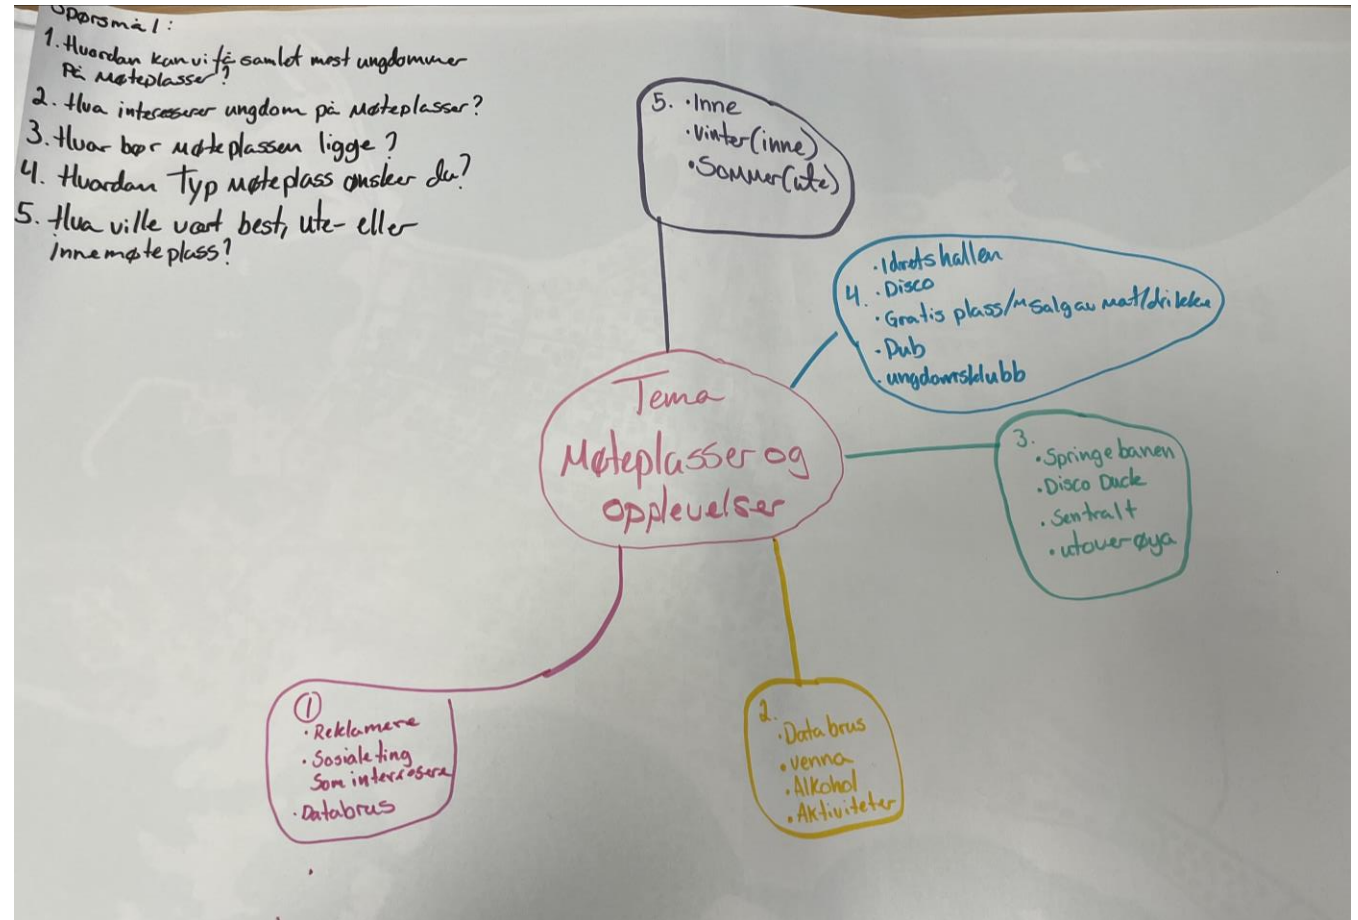 Spørsmål:
1. Hvordan kan vi få samlet mest ungdommer
På Møteplasser?
2. Hva interesserer ungdom på Møteplasser?
3. Hvor bør Møteplassen ligge?
4. Hvordan Typ Møteplass ønsker du?
5. Hva ville vært best, ute- eller
innemøteplass?
5. • Inne
• Vinter(inne)
• Sommer(ute)
• Idretshallen
4. • Disco
• Gratis plass/M salg av mat/drikke
• Pub
• ungdomsklubb
Tema
Møteplasser og
opplevelser
3.
• Springebanen
• Disco Duck
• Sentralt
• utover øya
①
• Reklamere
• Sosiale ting
Som interesere
• Databrus
2.
• Databrus
• venna
• Alkohol
• Aktiviteter